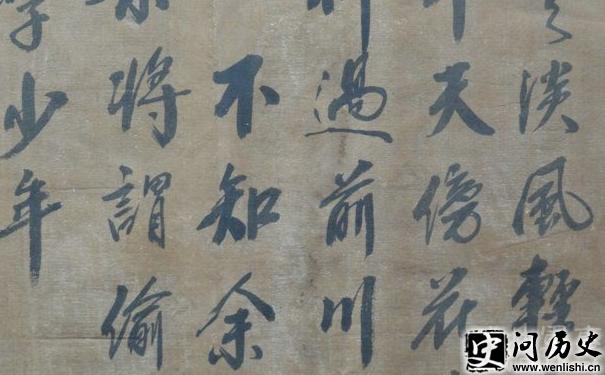 淡風輕
天傍花
過前川
不知余
將謂偷
少年
史问历史
www.wenlishi.cn